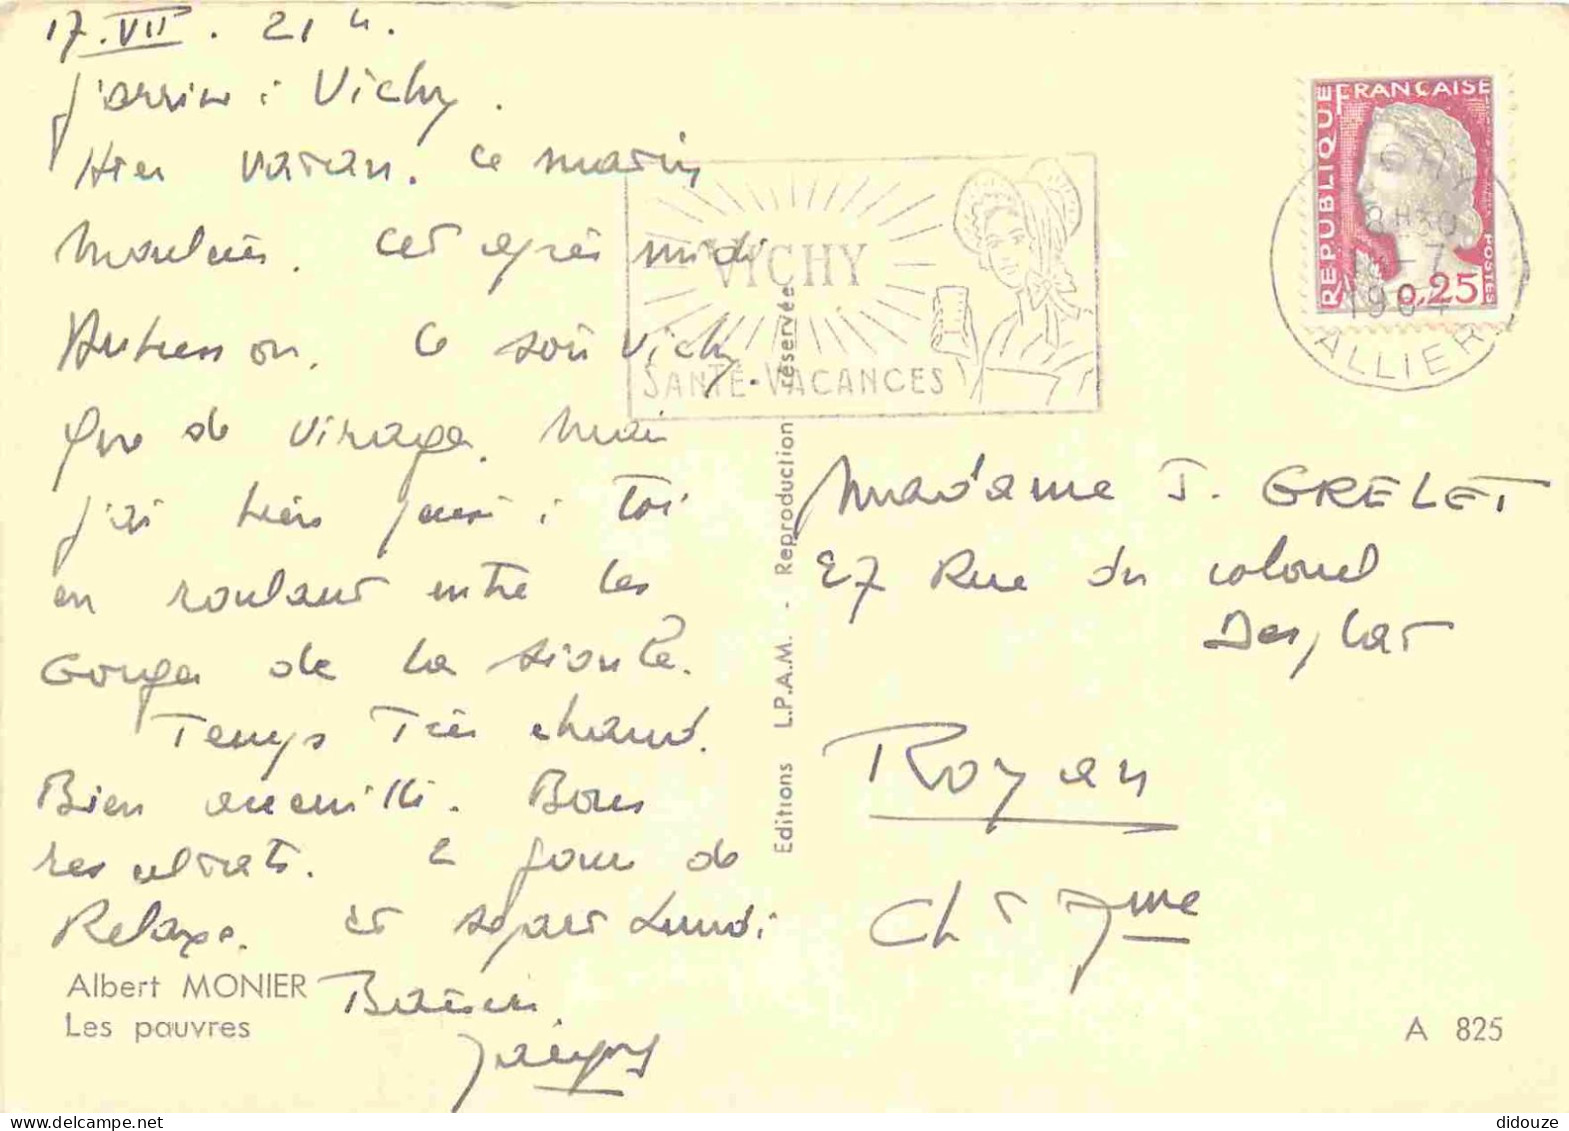 17.VII. 21 h.
j'arrive à Vichy.
Hier Varan. ce matin
Moulins. cet après midi
Aubusson. Ce soir Vichy.
Que de virages. Mais
j'ai bien pensé à toi
en roulant entre les
Gorges de la Sioule.
Temps Très chaud.
Bien accueilli. Bons
resultats. 2 jours de
Relaxe. et départ Lundi
Baisers.
Jacques
Albert MONIER
Les pauvres
VICHY
SANTÉ-VACANCES
Editions L.P.A.M. - Reproduction réservée
RÉPUBLIQUE FRANÇAISE
POSTES
0,25
VICHY
8H30
18-7
1964
ALLIER
Madame J. GRELET
27 Rue du colonel
Desplat
Royan
Ch t Mme
A 825
didouze